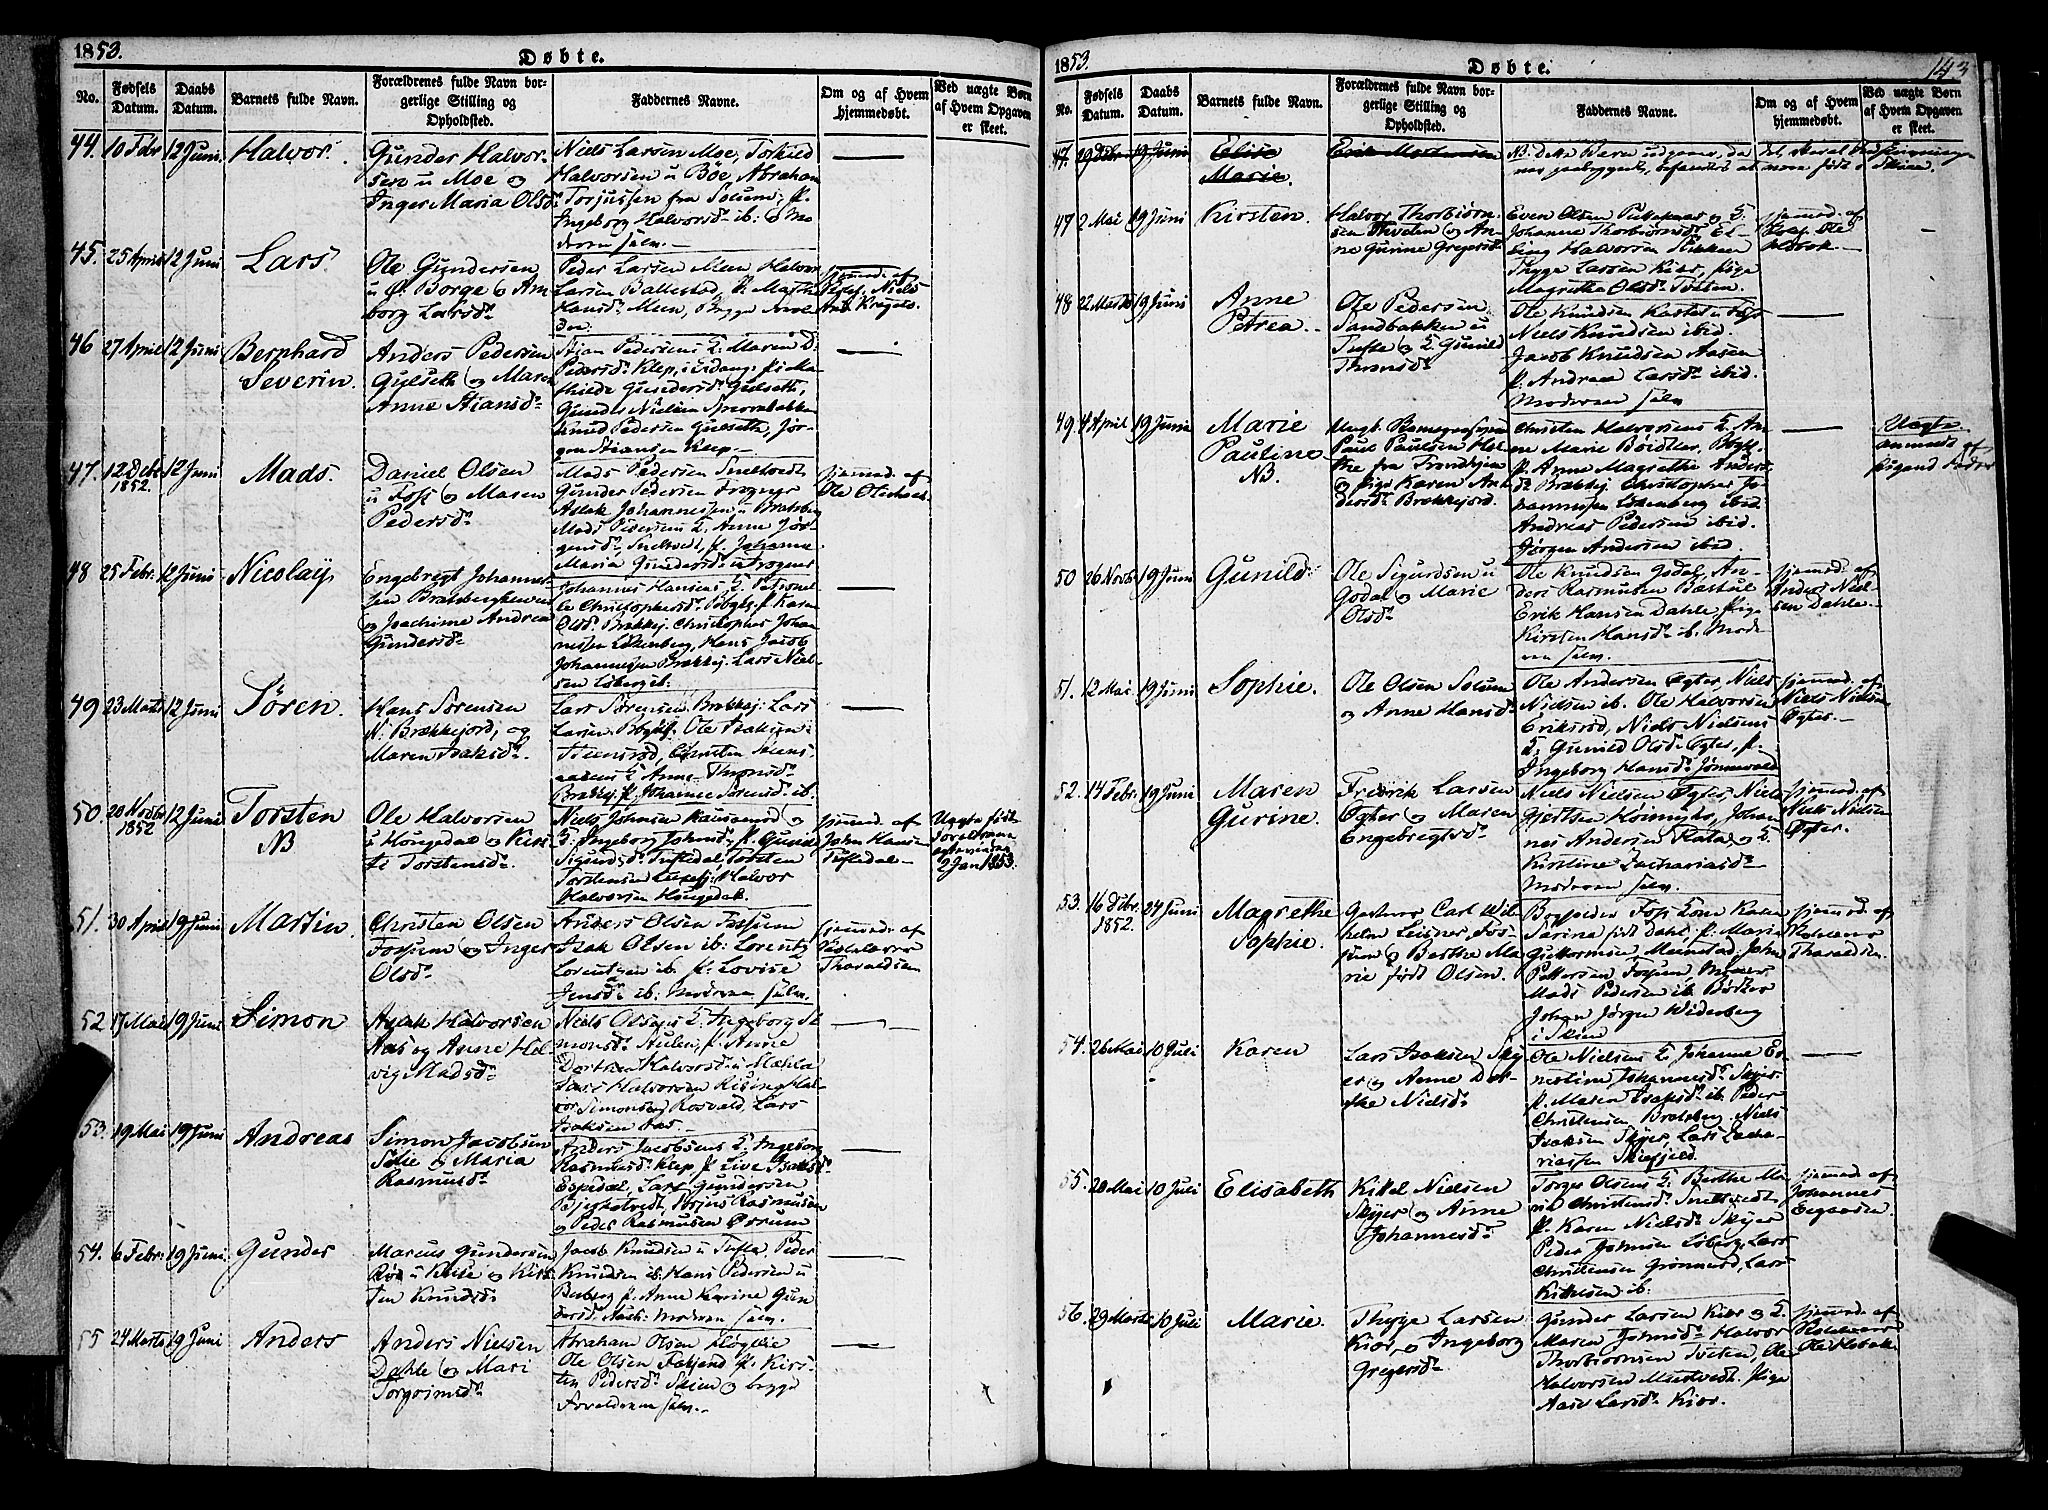 1853.
Døbte.
No.
Fødsels Datum.
Daabs Datum.
Barnets fulde Navn.
Forældrenes fulde Navn borgerlige Stilling og Opholdsted.
Faddernes Navne.
Om og af Hvem hjemmedøbt.
Ved uægte Børn af Hvem Opgaven er skeet.
44. 10 Febr 12 Juni Halvor.
Gunder Halvorsen u Moe og
Inger Maria Olsd.
Niels Larsen Moe, Torkild
Halvorsen u Boe, Abraham
Torjussen fra Solum, p.
Ingeborg Halvorsd. ib: og Moderen selv.
45. 25 April 12 Juni Lars.
Ole Gundersen
u Ø. Borge og Amborg Larsd.
Peder Larsen Meen, Halvor
Larsen Ballestad, p. Marthe
Hansd. Meen, Begge
hjemmed. af
46 27 April 12 Juni Bernhard
Severin.
Anders Pedersen
Gulseth og Maren
Anne Stiansd.
Stian Pedersens K. Maren
Pedersd. Klep, p. Mathilde Gundersd. Gulseth,
Gunder Nielsen
Knud Pedersen Gulseth, Jørgen Stiansen Klep.
47. 12 Debr 1852. 12 Juni Mads.
Daniel Olsen
u Foss og Maren
Pedersd.
Mads Pedersen Sneltvedt
Gunder Pedersen Frogner
Aslak Johannessen u Bratsberg
Mads Pedersens K. Anne Jørgensd. Sneltvedt, p. Johanne
Maria Gundersd. u Frogner
hjemmed. af
Ole
48 25 Febr. 12 Juni Nicolay,
Engebregt Johannessen Bratsbergkleven
og Joachime Andrea
Gundersd.
Johannes Hansens K. Petronelle Christophersd. Bøgl. p. Karen
Olsd. Brækkej. Christopher Johannessen Løkenberg, Hans Jacob
Johannessen Brækkej. Lars Nielsen Løberg ib.
49 23 Marts 12 Juni Søren.
Hans Sørensen
N. Brækkejord, og
Maren Isaksd.
Lars Sørensen Brækkej: Lars
Larsen Bøgl. Ole Isaksen
Steensrød, Christen
K. Anne Thronsd.
Brækkej. p. Johanne Sørensd. ib.
50. 20 Novbr 1852 12 Juni Torsten
NB
Ole Halvorsen
u Hougedal og Kirsti Torstensd.
Niels Johnsen og
K. Ingeborg Johnsd. p. Gunild
Sigurdsd. Tufledal, Torsten
Torstensen Halvor
Halvorsen Hougedal.
hjemmed. af
John Hansen
Tufledal
Uægte født
Forældrene
2 Jan 1853.
51. 30 April 19 Juni Martin.
Christen Olsen
Fossum og Inger
Olsd.
Anders Olsen Fossum
Isak Olsen ib: Lorentz
Lorentzen ib. p. Lovise
Jensd. ib: Moderen selv.
hjemmed. af
Skolelærer
Tharaldsen
52 17 Mai 19 Juni Simon
Aslak Halvorsen
Aas og Anne Helvig Madsd.
Niels Olsens K. Ingeborg Simonsd. Aulen, p. Anne
Dorthea Halvorsd. u Mæhla
Lars Halvorsen Rising Halvor Simonsen Rosvald, Lars
Isaksen Aas.
53. 19 Mai 19 Juni Andreas
Simon Jacobsen
Selie og Maria
Rasmusd.
Anders Jacobsens K. Ingeborg
Rasmusd. Klep, p. Live
Espedal, Lars Gundersen
Bjerketvedt, Torjus Rasmusen
og Peder Rasmusen Ørrum
54. 6 Febr. 19 Juni Gunder
Marcus Gundersen
Røe u Kaise og Kirsten Knudsd.
Jacob Knudsen u Tufte, Peder
Knudsen ib. Hans Pedersen u
Berberg p. Anne Karine Gundersd. Moderen selv.
55 24 Marts 19 Juni Anders
Anders Nielsen
Dahle og Mari
Torgrimsd.
Abraham Olsen
Ole Olsen p. Kirsten Pedersd. Skien og begge
Forældrene selv.
1853.
Døbte.
143
No.
Fødsels Datum.
Daabs Datum.
Barnets fulde Navn.
Forældrenes fulde Navn borgerlige Stilling og Opholdsted.
Faddernes Navne.
Om og af Hvem hjemmedøbt.
Ved uægte Børn af Hvem Opgaven er skeet.
47. 29 Debr 19 Juni Elise
Marie.
Erik Mortensen
NB. dette Barn udgaaer, da det,
befandtes at være født i Skien.
47 2 Mai 19 Juni Kirsten.
Halvor Thorbiørnsen Tveten og Anne Gurine Gregersd.
Even Olsen og K.
Johanne Thorbiørnsd. Elling Halvorsen
Thyge Larsen Kiør, pige
Magrethe Olsd. Tveten.
hjemmed. af
Ole
48 22 Marts 19 Juni Anne
Petrea.
Ole Pedersen
Sandbakken u
Tufte og K. Gunild
Thronsd.
Ole Knudsen
Niels Knudsen ibid.
Jacob Knudsen Aasen
p. Andrea Larsd. ibid.
Moderen selv
49. 4 April 19 Juni Marie
Pauline
NB.
Ungk.
Paul Paulsen
fra Trondhjem
og pige Karen Andersd. Brækkejord.
Christen Halvorsens K. Anne Marie Bøidler, Bøgl.
p. Anne Magrethe Andersd. Brækkej. Christopher Johannessen Løkenberg ibid.
Andreas Pedersen ibid.
Jørgen Andersen ibid.
Uægte
anmeldt af
50 26 Novb. 19 Juni Gunild
Ole Sigurdsen u
Godal og Marie
Olsd.
Ole Knudsen Godal, Anders Rasmusen
Erik Hansen Dahle, pige
Kirsten Hansd. ib. Moderen selv.
hjemmed. af
Anders Nielsen Dahle.
51. 12 Mai 19 Juni Sophie.
Ole Olsen Solum
og Anne Hansd.
Ole Andersen Ogter, Niels
Nielsen ib. Ole Halvorsen
Eriksrød, Niels Nielsens
K. Gunild Olsd. Ogter, p.
Ingeborg Hansd. Jønnevald
hjemmed. af
Niels Nielsen
Ogter.
52. 14 Febr. 19 Juni Maren
Gurine.
Fredrik Larsen
Ogter og Maren
Engebregtsd.
Niels Nielsen Ogter, Niels
Gjertsen Høimyhr, Johannes Andersen Rata og K.
Kirstine Zachariasd.
Moderen selv.
hjemmed. af
Niels Nielsen
Ogter.
53. 16 Debr. 1852. 24 Juni Magrethe
Sophie.
Carl Wilhelm Leisner, Fossum og Berthe Marie født Olsen.
Foss Kone Karen
Sarina født Dahl, p. Maria
Guttormsen, Meinstad, John
Pettersen Fossum,
Mads Pedersen ib. Bødker
Johan Jørgen Widerberg
i Skien
hjemmed. af
Tharaldsen
54. 26 Mai 10 Juli Karen
Lars Isaksen Skyer og Anne Dorthe Nielsd.
Ole Nielsens K. Johanne Ernestine Johannesd. Skyer
p. Maren Isaksd. ib. Peder
Christensen Bratsberg, Niels
Isaksen Skyer, Lars Zachariassen
55. 20 Mai 10 Juli Elisabeth
Kittel Nielsen
Skyer og Anne
Johannesd.
Torger Olsens K. Berthe Marie Christensd. Sneltvedt
p. Karen Nielsd. Skyer
Peder Johnsen Løberg, Lars
Christensen Grønnerød, Lars
Kittelsen ib.
hjemmed. af
Johannes
56. 29 Marts 10 Juli Marie.
Thyge Larsen
Kiør og Ingeborg
Gregersd.
Gunder Larsen Kiør og K.
Maren Johnsd. Halvor
Thorbiørnsen Tveten, Ole
Halvorsen pige
Aase Larsd. Kiør.
hjemmed. af
Skolelærer
Ole